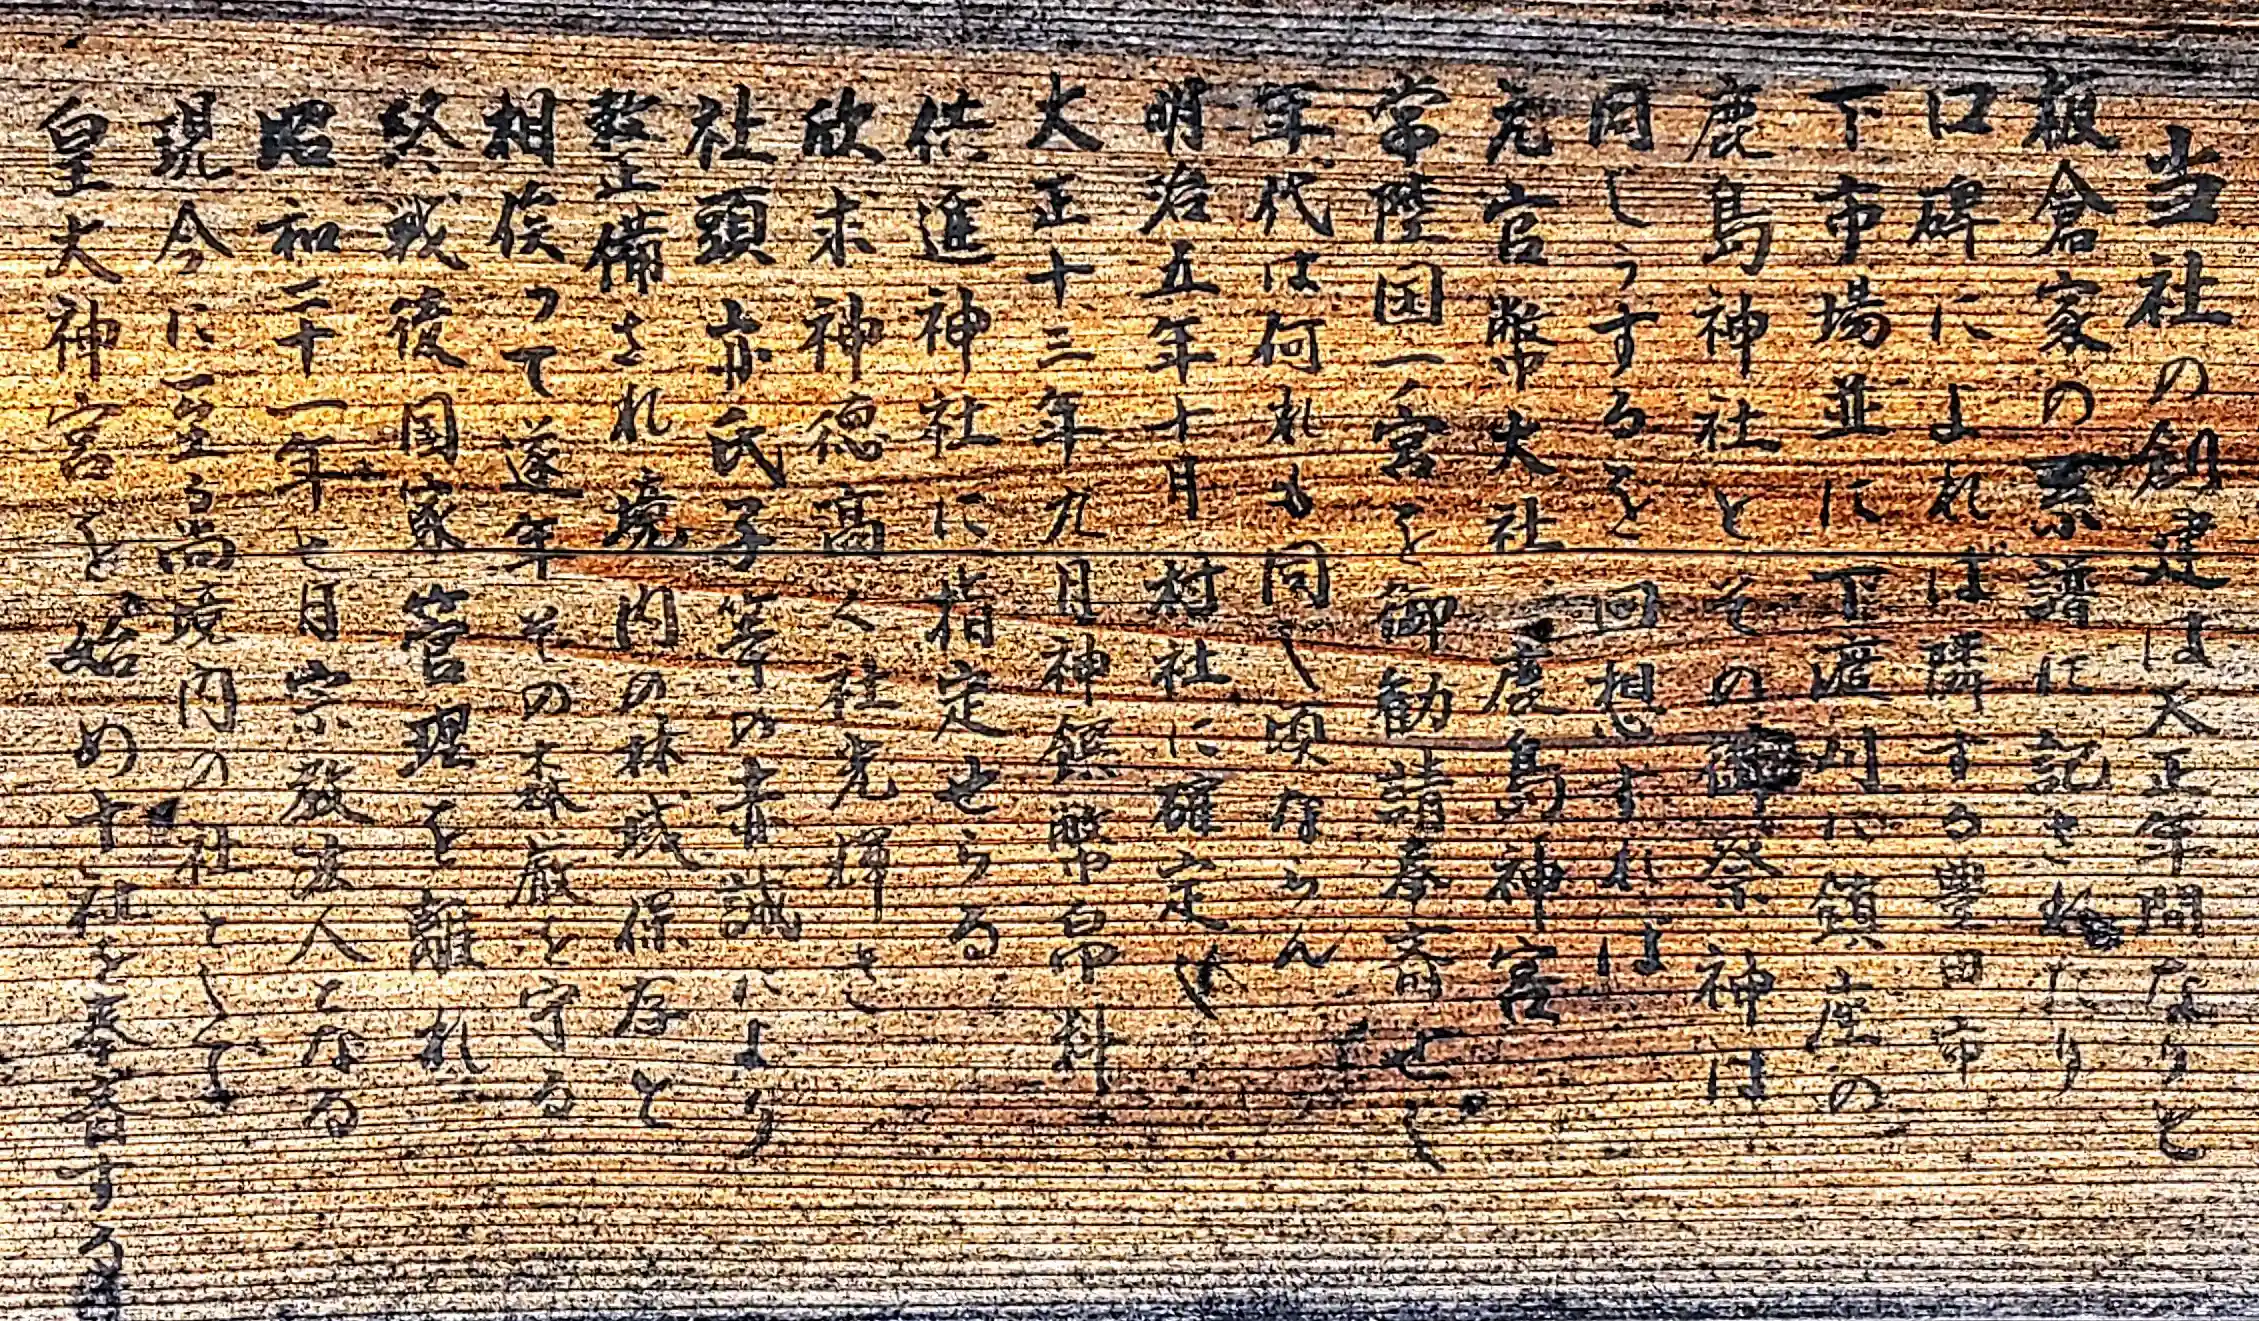 当社の創建は大正年間なりと
板倉家の系譜に記され居たり
口碑によれば隣する豊田市
下市場並に下渡刈に鎮座の
鹿島神社とその御祭神は
同じうするを回想すれば
元官幣大社 鹿島神宮
常陸国一ノ宮を御勧請奉斎せし
年代は何れも同じ頃ならん
明治五年十月村社に確定し
大正十三年九月神饌幣帛料
供進神社に指定せらる
欣求神徳高く社光輝き
社頭亦氏子等の赤誠により
整備され境内の林域保存と
相俟って逐年その森厳を守る
終戦後国家管理を離れ
昭和二十一年七月宗教法人となる
現今に至る尚境内の社として
皇大神宮を始め十社を奉斎する